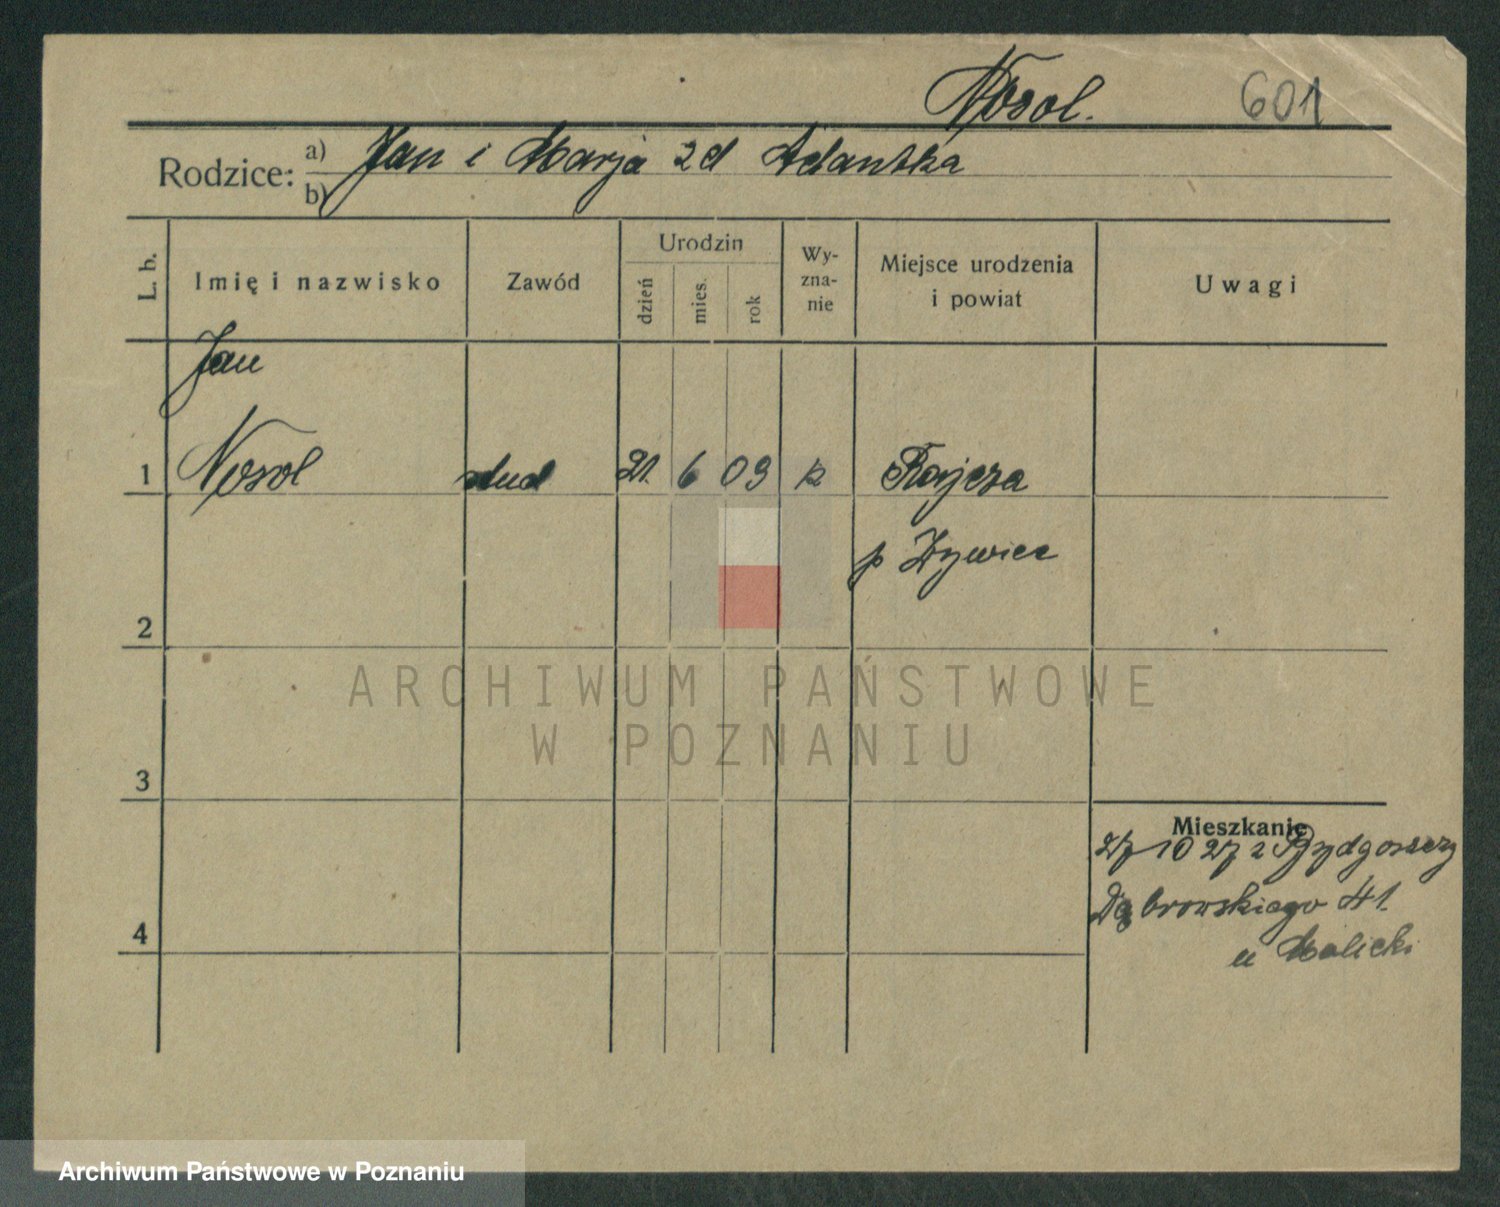 Nosol.
601
Rodzice: a) Jan i Marja zd Adamska
b)
L. b.
Imię i nazwisko
Zawód
Urodzin
dzień
mies.
rok
Wy-
zna-
nie
Miejsce urodzenia
i powiat
Uwagi
Jan
1 Nosol stud 21. 6 09 k Rajcza
p Żywiec
2
ARCHIWUM PAŃSTWOWE
W POZNANIU
3
Mieszkanie
27 10 27 z Bydgoszczy
Dąbrowskiego 41.
u Malicki
4
Archiwum Państwowe w Poznaniu